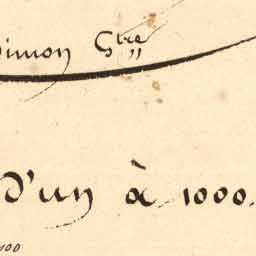 Simon Gtre
d'un à 1000.
100